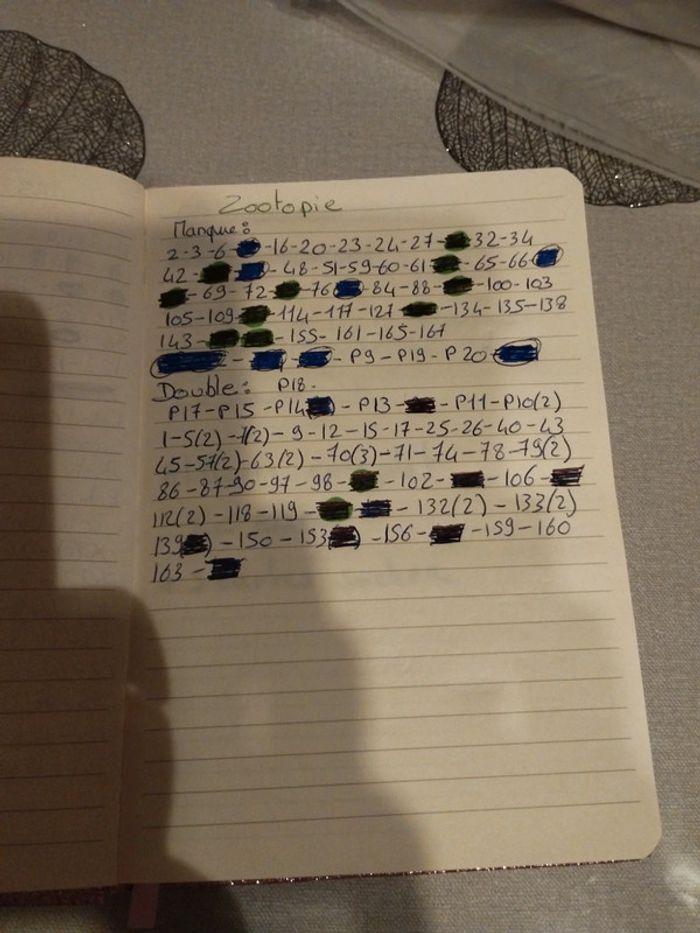 Zootopie
Manque:
2-3-6- -16-20-23-24-27- 32-34
42- - 48-51-59-60-61 - 65-66-
- 69-72- -76 -84-88- -100-103
105-109- -114-117-127 -134-135-138
143- -155-161-165-167
- - - P9-P19-P20-
Double: P18-
P17-P15-P14 -P13- -P11-P10(2)
1-5(2)-7(2)-9-12-15-17-25-26-40-43
45-57(2)-63(2)-70(3)-71-74-78-79(2)
86-87-90-97-98- -102- -106-
112(2)-118-119- - -132(2)-133(2)
139 ) -150-153 ) -156- -159-160
163-